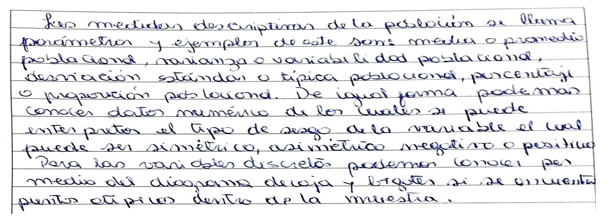 Las medidas descriptivas de la población se llama
parámetros y ejemplos de este son: media o promedio
poblacional, varianza o variabilidad poblacional,
desviación estándar o típica poblacional, porcentaje
o proporción poblacional. De igual forma podemos
conocer datos numérico de los cuales se puede
interpretar el tipo de sesgo de la variable el cual
puede ser simétrico, asimétrico negativo o positivo
Para las variables discretas podemos conocer por
medio del diagrama de caja y bigotes si se encuentra
puntos atípicos dentro de la muestra.